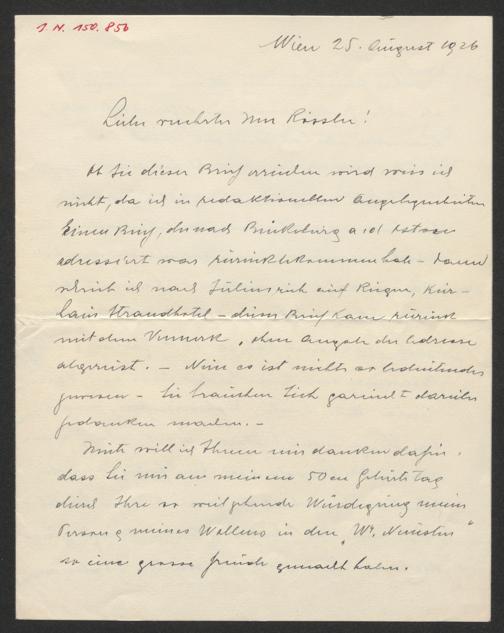 I. N. 150.856
Wien 25. August 1926
Lieber verehrter Herr Rössler!
Ob Sie dieser Brief erreichen wird weiss ich
nicht, da ich in redaktionellen Angelegenheiten
einen Brief, der nach Brückeburg a d Ostsee
adressiert war zurückbekommen habe – dann
schrieb ich nach Juliusruh auf Rügen, Kur-
haus Strandhotel – dieser Brief kam zurück
mit dem Vermerk, ohne Angabe der Adresse
abgereist. – Nun es ist nichts so bedeutendes
gewesen – Sie brauchen sich gar nicht darüber
Gedanken machen. –
Heute will ich Ihnen nur danken dafür,
dass Sie mir an meinem 50en Geburtstag
durch Ihre so weitgehende Würdigung meiner
Person & meines Wollens in den „W. Neuesten"
so eine grosse Freude gemacht haben.